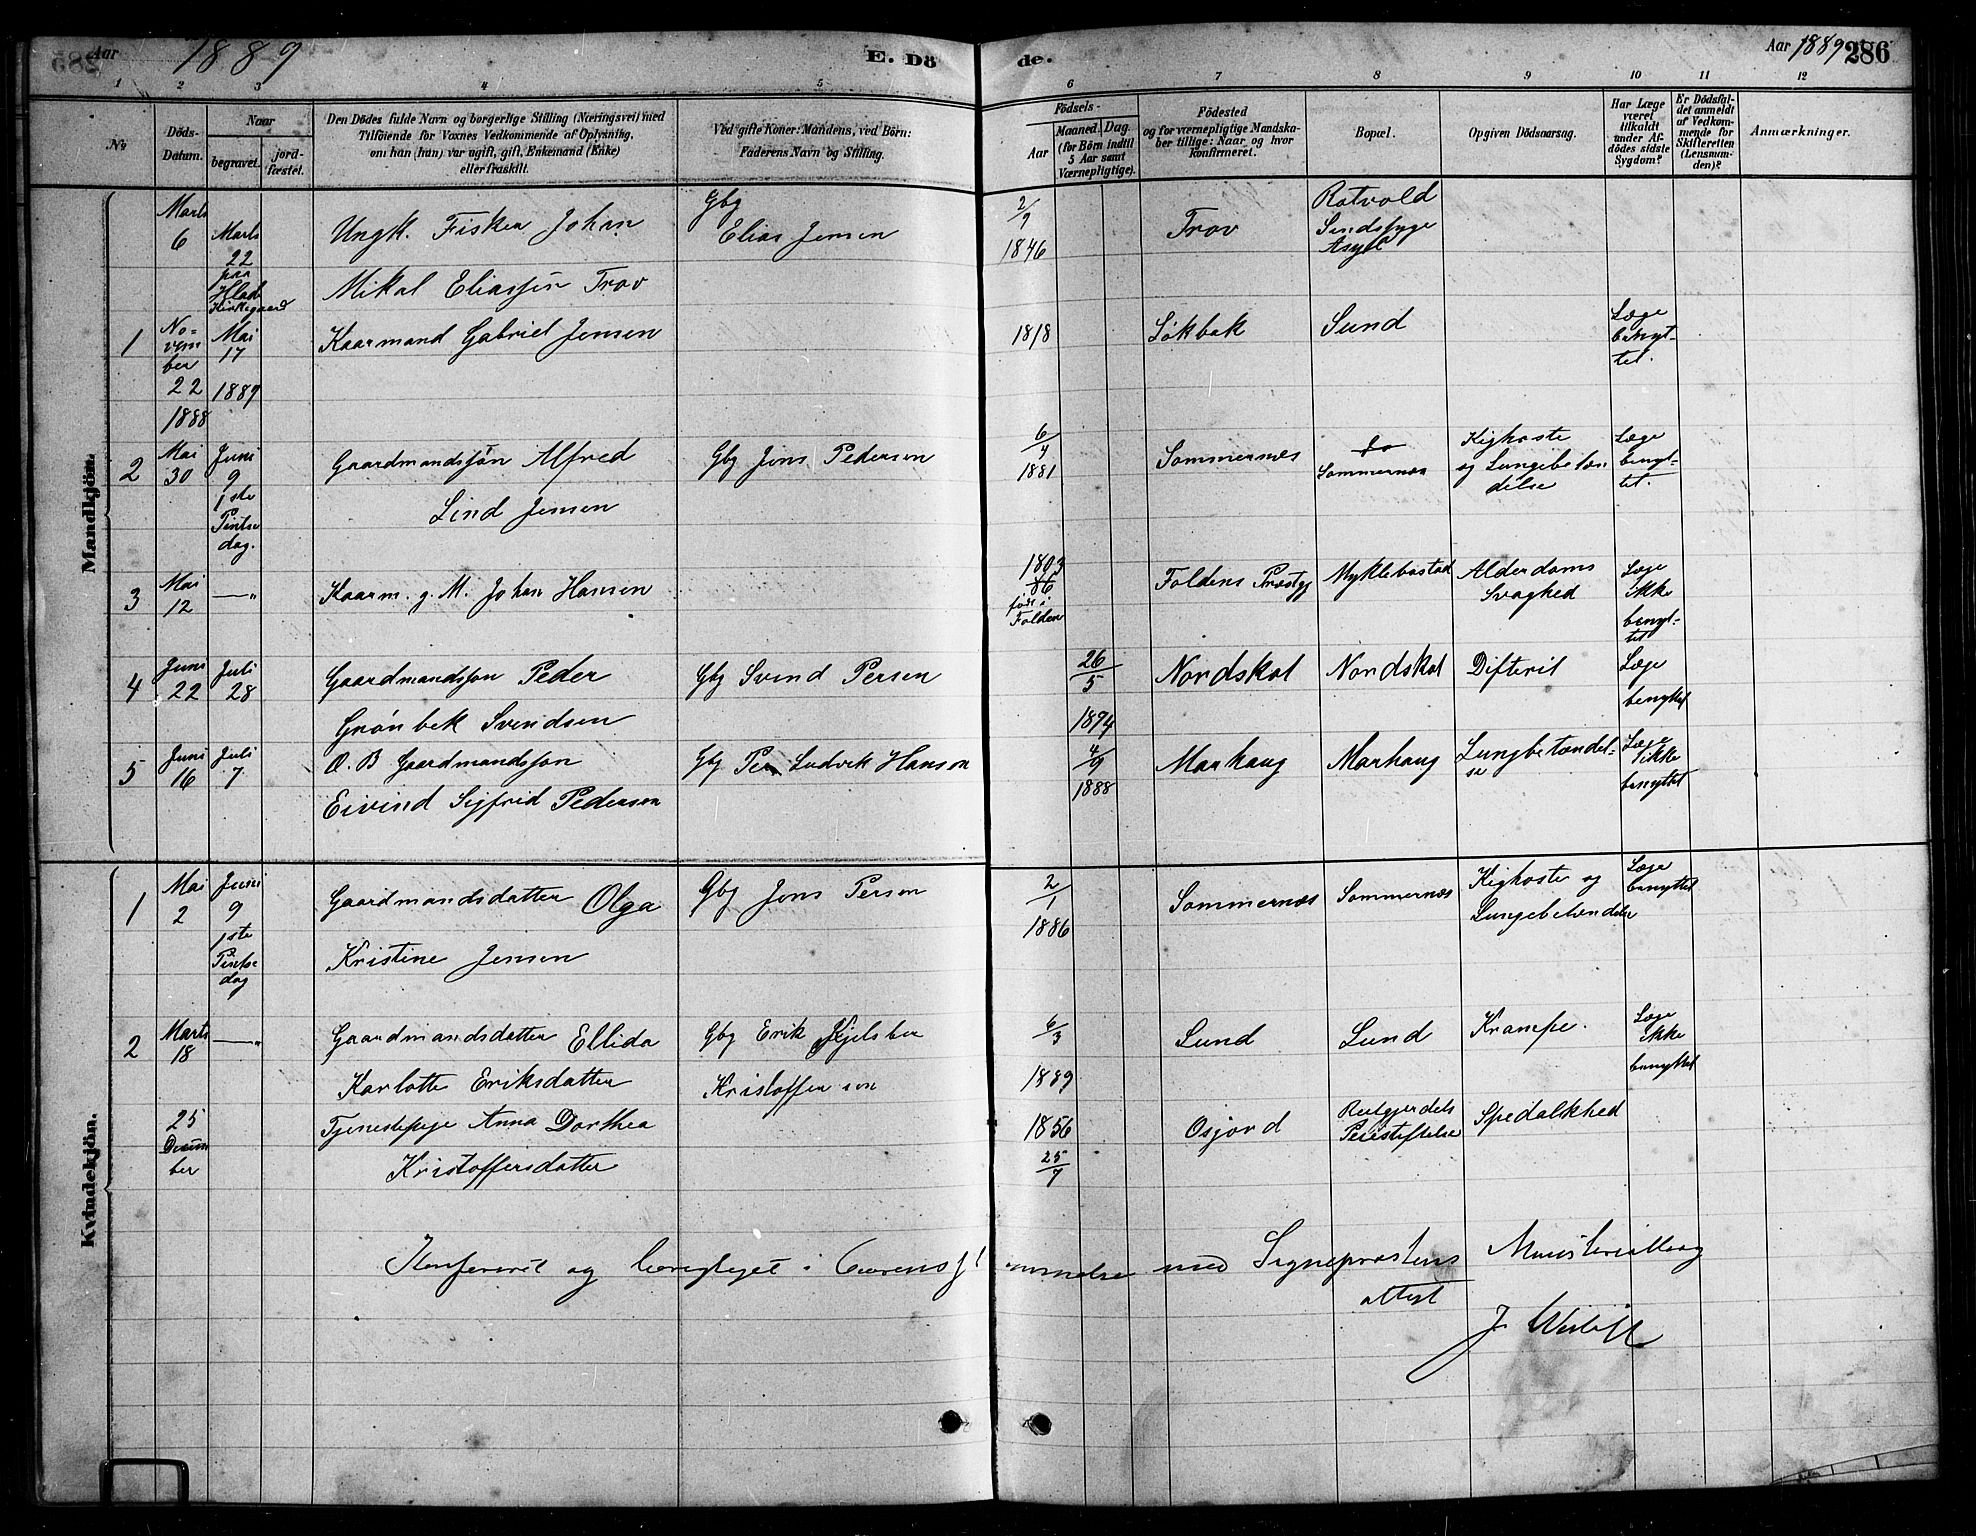 Aar 1889
E. Dö
de.
Aar 1889 286
1 2 3 4 5 6 7 8 9 10 11 12
No
Döds-Datum.
Naar
begravet. jord-fæstet.
Den Dödes fulde Navn og borgerlige Stilling (Næringsvei) med
Tilföiende for Voxnes Vedkommende af Oplysning,
om han (hun) var ugift, gift, Enkemand (Enke)
eller fraskilt.
Ved gifte Koner: Mandens, ved Börn:
Faderens Navn og Stilling.
Födsels-
Aar Maaned. Dag.
(for Börn indtil
5 Aar samt
Værnepligtige).
Födested
og for værnepligtige Mandska-
ber tillige: Naar og hvor
konfirmeret.
Bopæl.
Opgiven Dödsaarsag.
Har Læge
været
tilkaldt
under Af-
dödes sidste
Sygdom?
Er Dödsfal-
det anmeldt
af Vedkom-
mende for
Skifteretten
(Lensman-
den)?
Anmærkninger.
Mandkjön.
Marts 6
Marts 22 paa Hlade Kirkegaard
Ungk. Fisker Johan
Mikal Eliassen Trov
Gbg
Elias Jensen
2/9 1846
Trov
Rotvold
Sindssyge
Asyl
1
No-
vem
ber
22
1888
Mai
17
1889
Kaarmand Gabriel Jensen
1818
Løkbak
Sund
Læge
benyt-
tet.
2
Mai
30
Juni
9
1ste
Pintse
dag.
Gaardmandssøn Alfred
Lind Jensen
Gbg Jens Pedersen
6/4
1881
Sommernes
Sommernes
Kighoste
og Lungebetæn
delse
Læge
benyt-
tet.
3
Mai
12
—"
Kaarm. g. M. Johan Hansen
1803
født i
Folden
Foldens Præstgj
Myklebostad
Alderdoms
Svaghed
Læge
Ikke
benyt-
tet
4
Juni
22
Juli
28
Gaardmandssøn Peder
Grønbek Svendsen
Gbg Svend Persen
26/5
1874
Nordskot
Nordskot
Difterit
Læge
benyttet
5
Juni
16
Juli
7
O. B Gaardmandssøn
Eivind Sigfrid Pedersen
Gbg Per Ludvik Hansen
4/9
1888
Marhaug
Marhaug
Lungbetændel-
se
Læge
ikke
benyttet
Kvindekjön.
1
Mai
2
Juni
9
1ste
Pintse
dag
Gaardmandsdatter Olga
Kristine Jensen
Gbg Jens Persen
2/1
1886
Sommernes
Sommernes
Kighoste og
Lungebetændelse
Læge
benyttet
2
Marts
18
—"
Gaardmandsdatter Ellida
Karlotte Eriksdatter
Gbg Erik Kjelsber
Kristoffersen
6/3
1889
Lund
Lund
Krampe.
Læge
Ikke
benyttet
25
Decem
ber
Tjenestepige Anna Dorthea
Kristoffersdatter
1856
25/7
Osjord
Reitgjerdets
Pleiestiftelse
Spedalkhed
Konfereret og berigtiget i Overensst
emmelse med Sognepræstens Ministerialbog
attest
J.